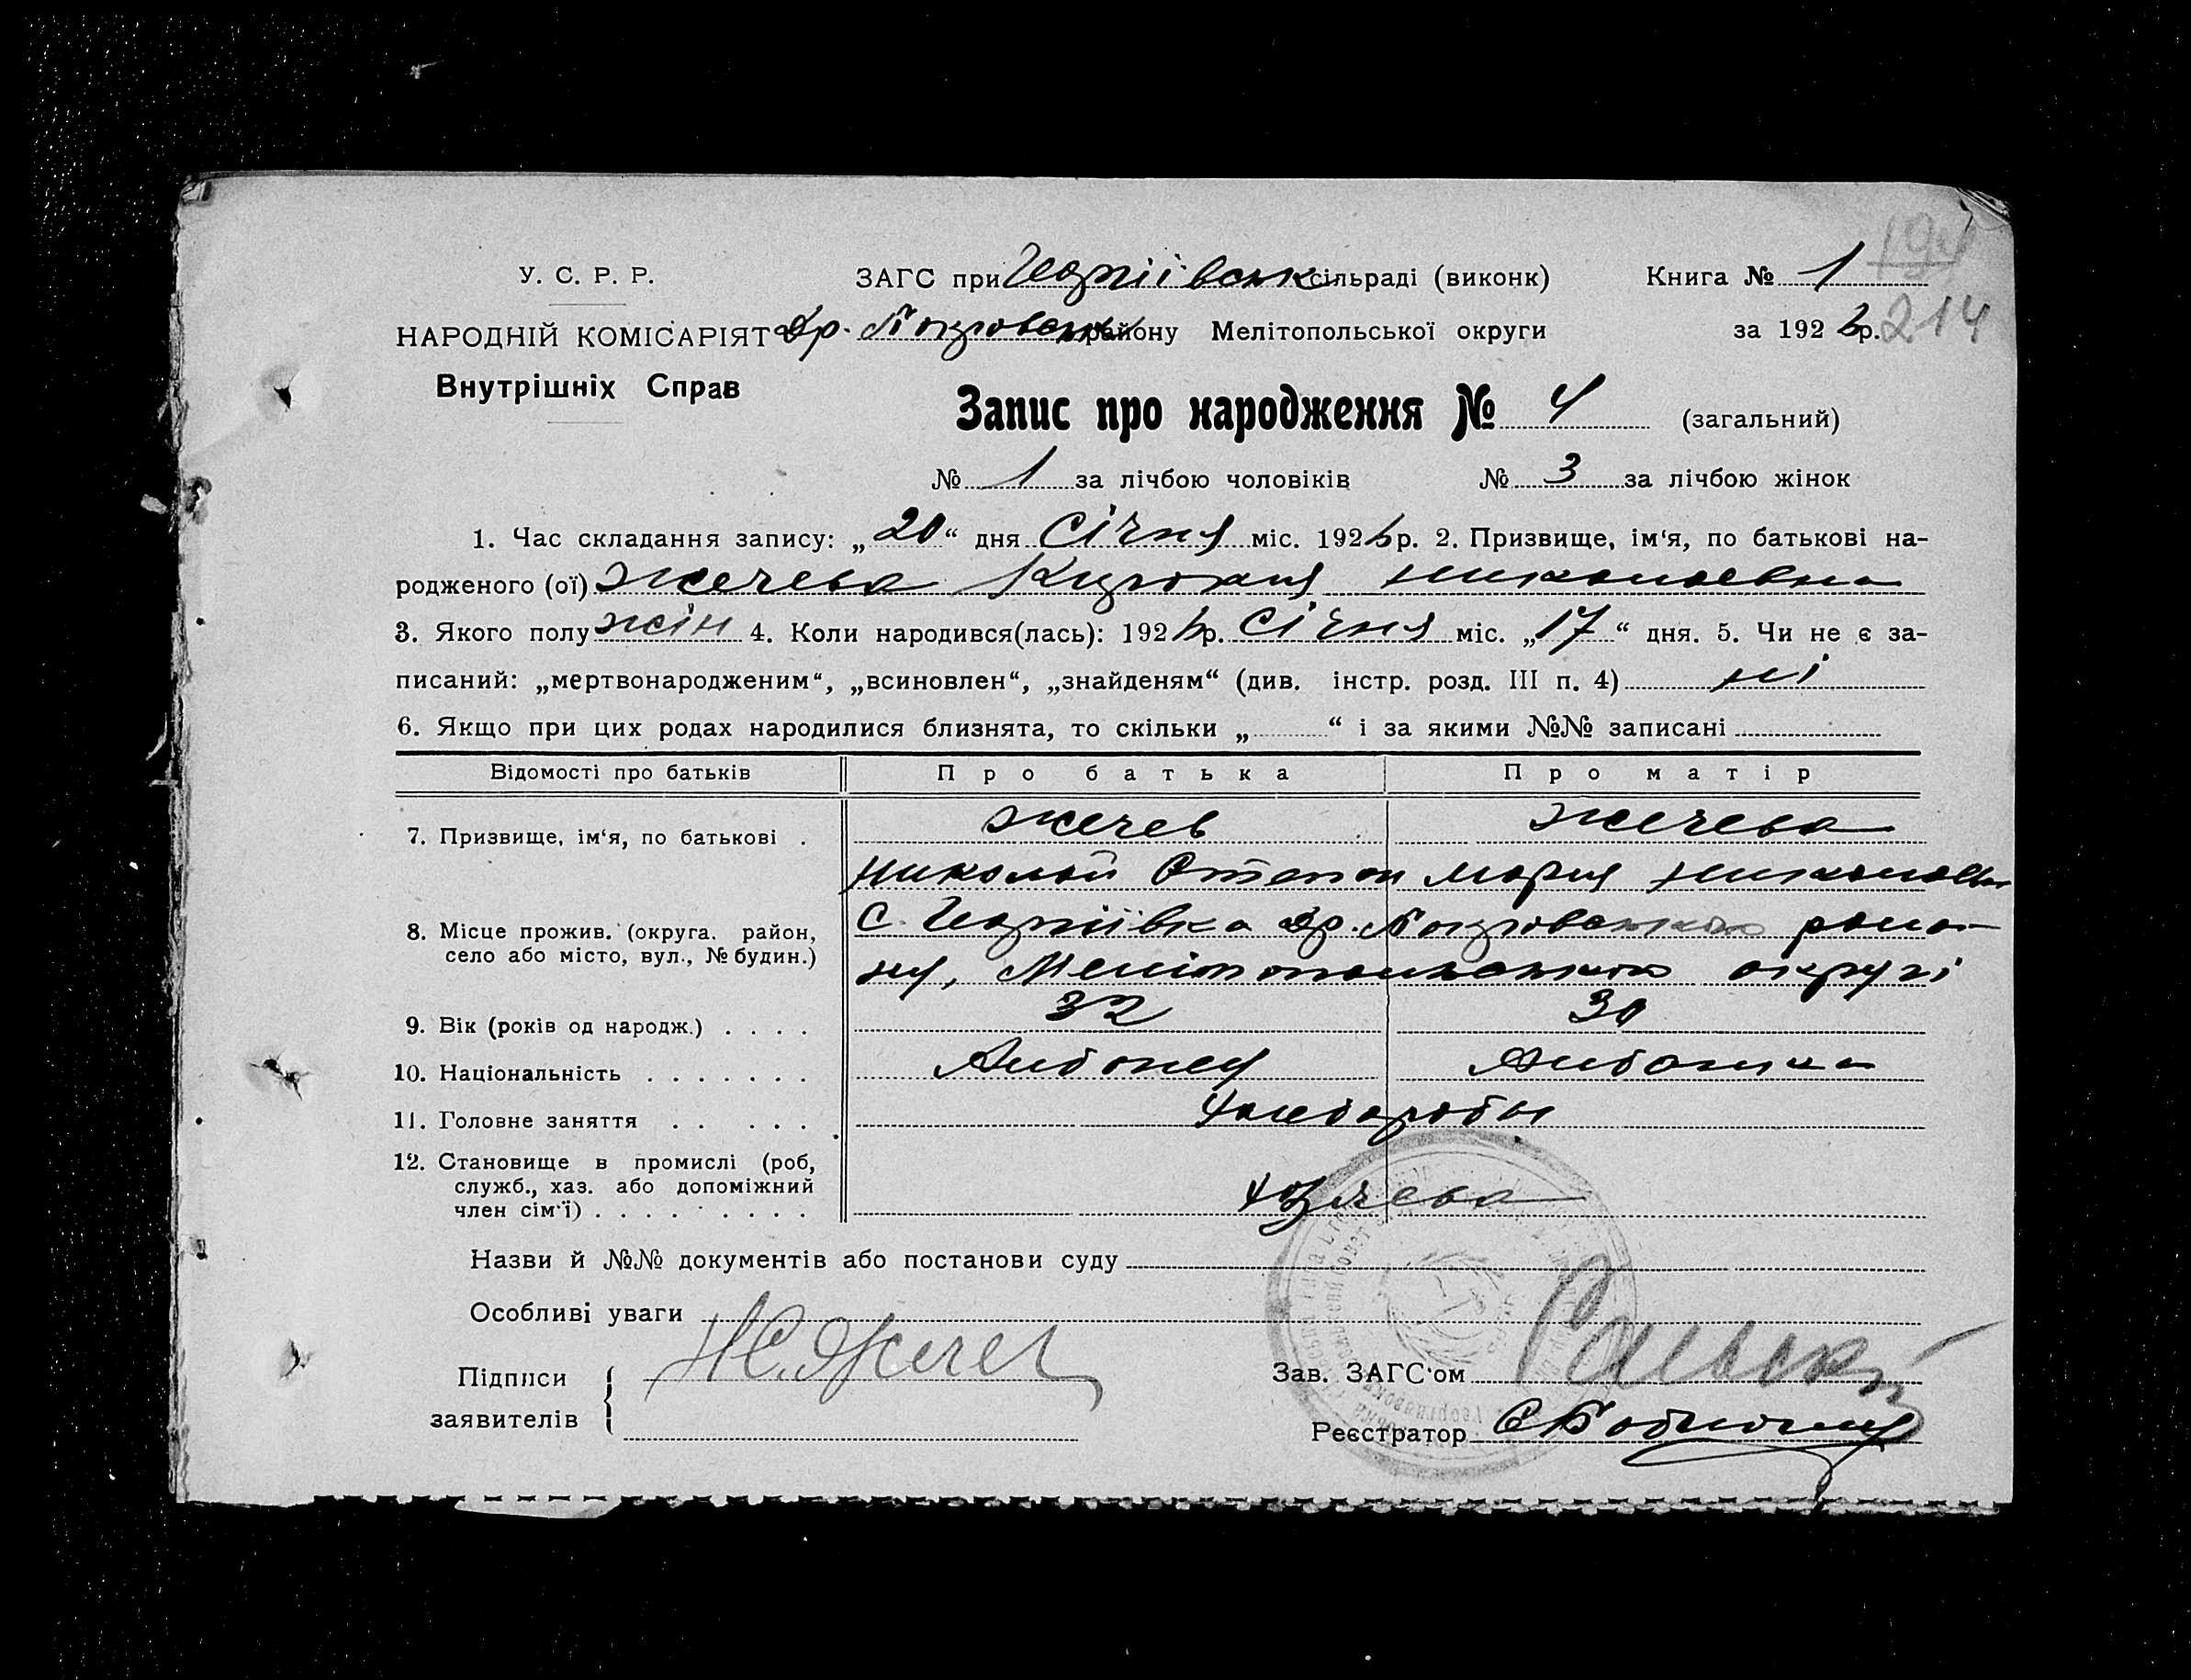 У. С. Р. Р.
НАРОДНІЙ КОМІСАРІЯТ
Внутрішніх Справ
ЗАГС при Георгіївськ сільраді (виконк)
Др. Покровськ району Мелітопольської округи
Книга № 1
за 1926 р.
214
Запис про народження № 4 (загальний)
№ 1 за лічбою чоловіків № 3 за лічбою жінок
1. Час складання запису: „20“ дня Січня міс. 1926 р. 2. Призвище, ім‘я, по батькові на-
родженого (ої) Жечева Николаевна
3. Якого полу жін 4. Коли народився(лась): 1926 р. Січня міс. „17“ дня. 5. Чи не є за-
писаний: „мертвонародженим“, „всиновлен“, „знайденям“ (див. інстр. розд. III п. 4) ні
6. Якщо при цих родах народилися близнята, то скільки „ “ і за якими №№ записані
Відомості про батьків Про батька Про матір
7. Призвище, ім‘я, по батькові . Жечев Жечева
Николай Степан Мария
8. Місце прожив. (округа. район, село або місто, вул., № будин.)
С. Георгіївка Др. Покровського райо-
ну, Мелітопольського округі
9. Вік (років од народж.) . . . . 32 30
10. Національність . . . . . . . Албонец Албонка
11. Головне заняття . . . . . . Хлебороби
12. Становище в промислі (роб,
служб., хаз. або допоміжний
член сім‘ї) . . . . . . . . .
Назви й №№ документів або постанови суду
Особливі уваги
Підписи
заявителів
Н.С. Жечев
Зав. ЗАГС‘ом
Реєстратор